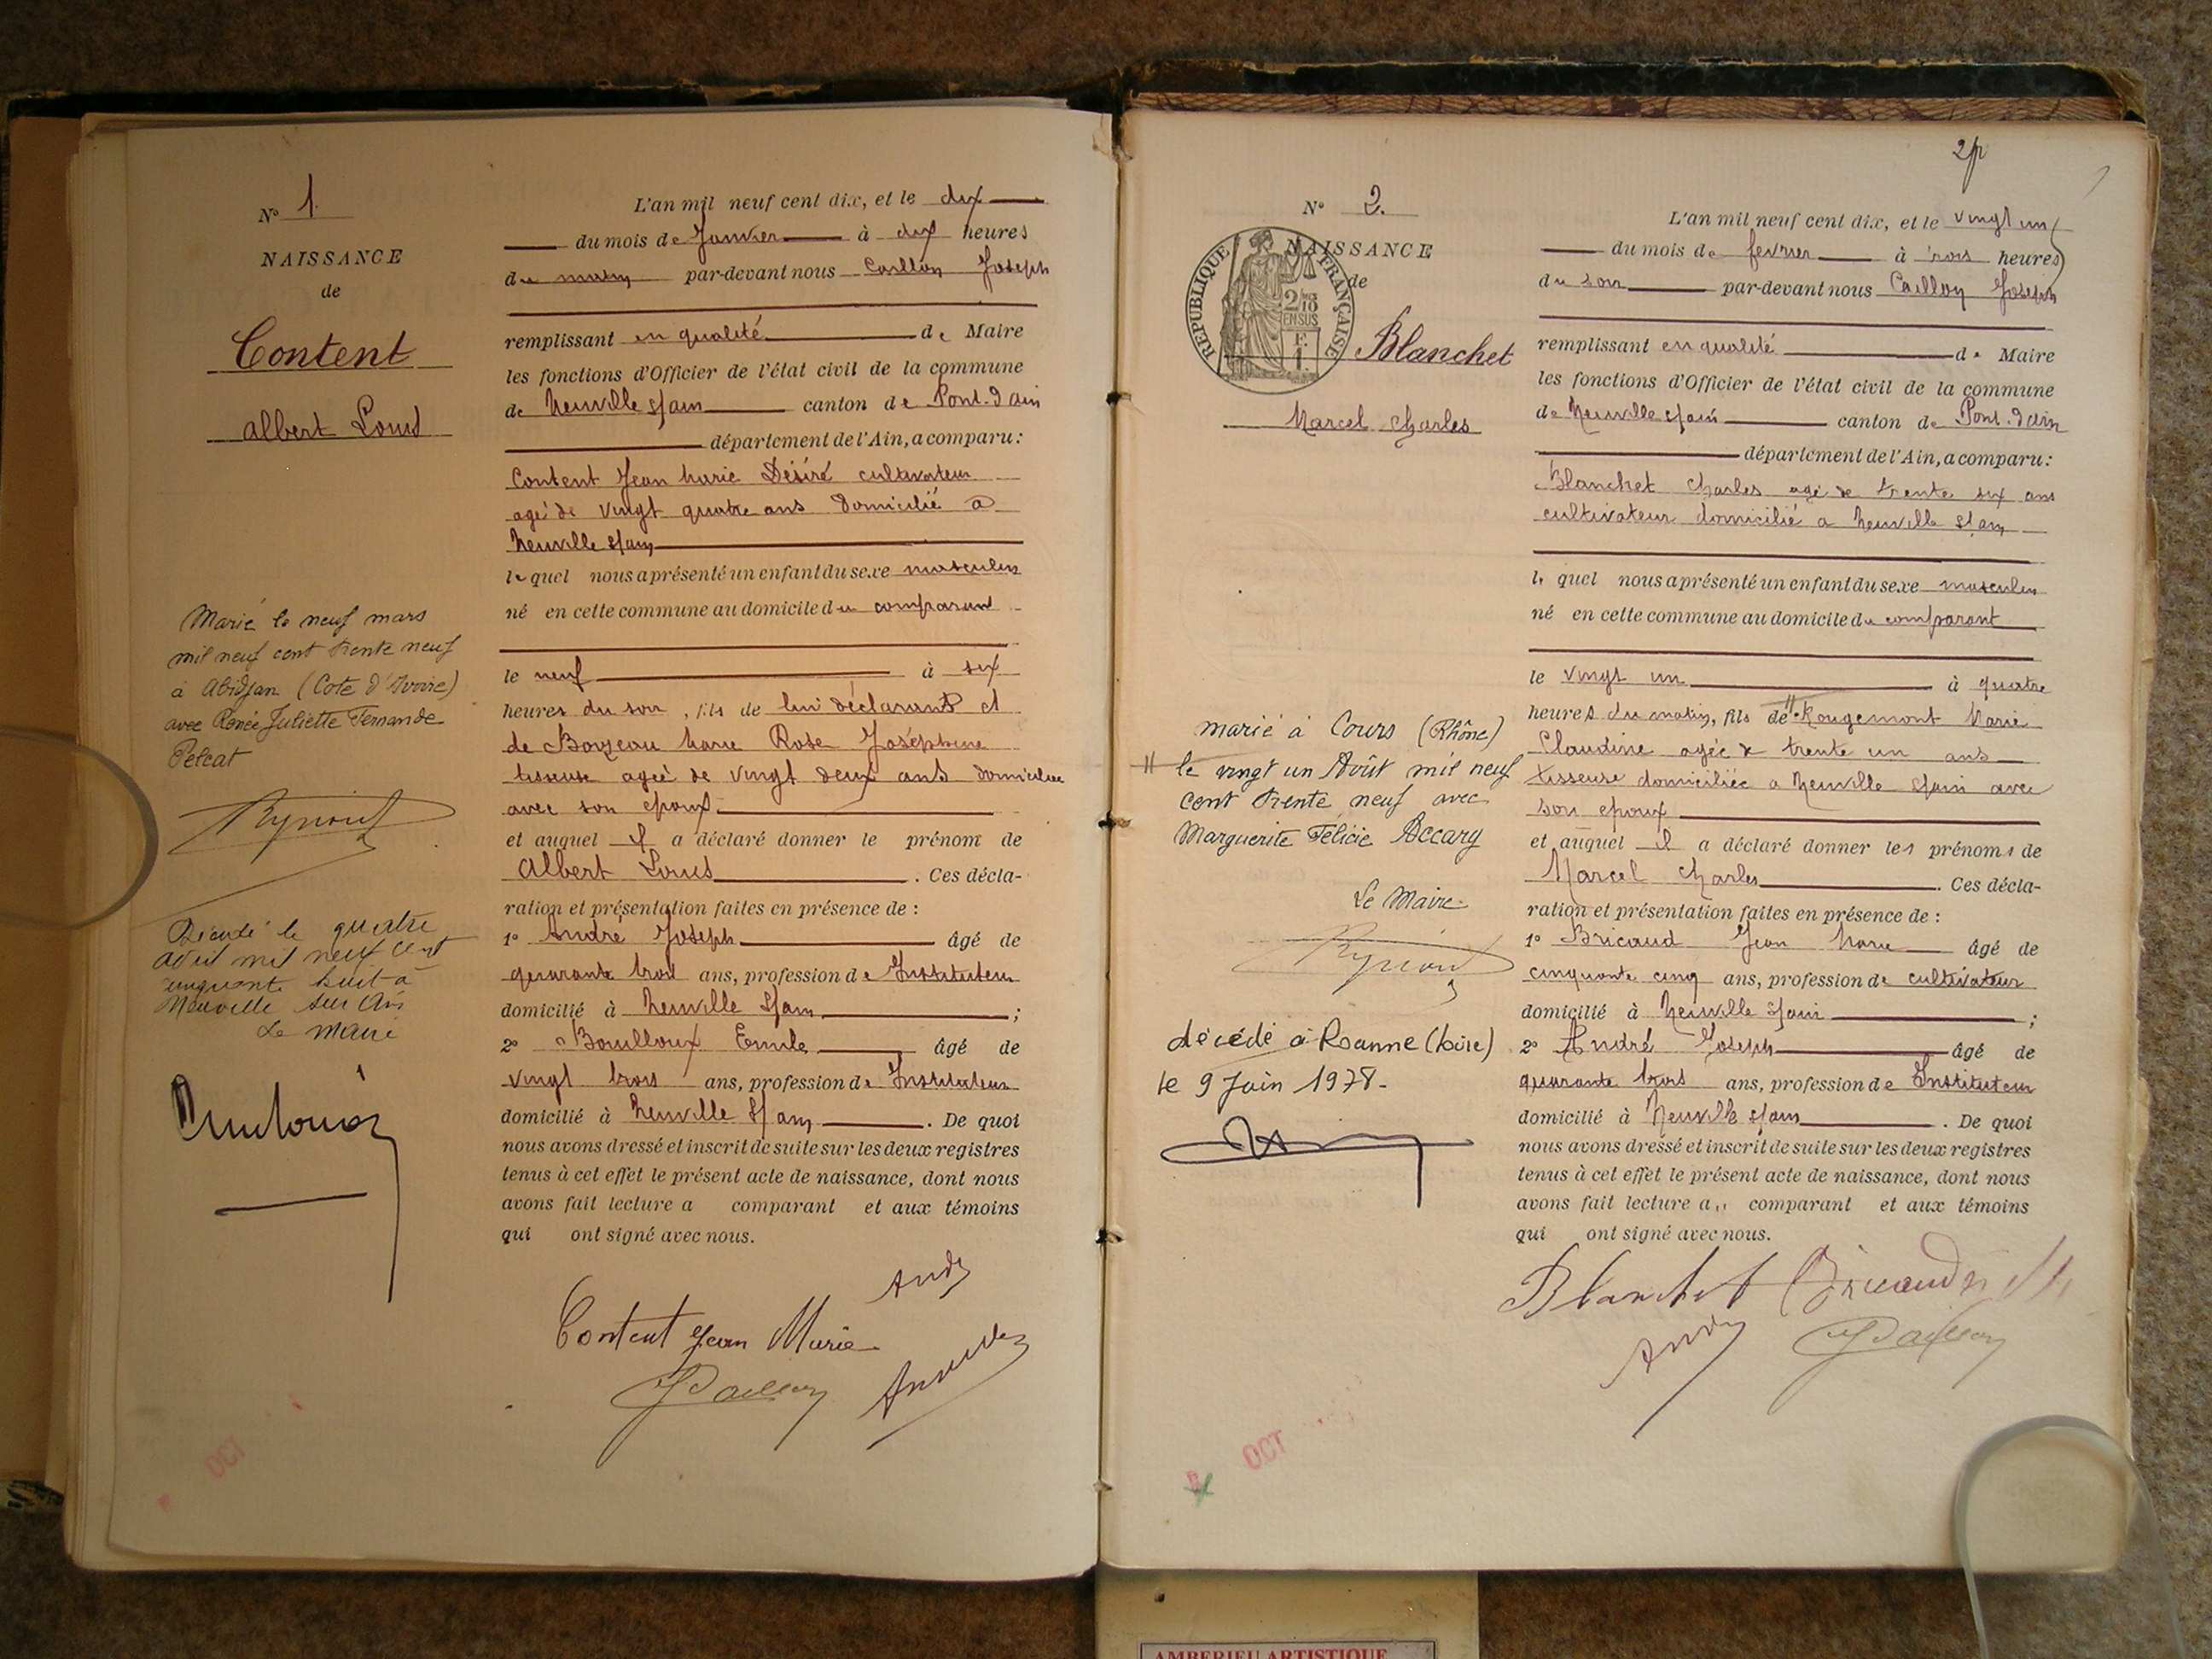 N° 1.
NAISSANCE
de
Content
Albert Louis
Marié le neuf mars
mil neuf cent trente neuf
à Abidjan (Cote d'Ivoire)
avec Renée Juliette Fernande
Pelcat
Décédé le quatre
avril mil neuf cent
cinquante huit à
Neuville sur Ain
Le maire
L'an mil neuf cent dix, et le dix
du mois de Janvier à dix heures
du matin par-devant nous Caillon Joseph
remplissant en qualité de Maire
les fonctions d'Officier de l'état civil de la commune
de Neuville s/ain canton de Pont-d'ain
département de l'Ain, a comparu :
Content Jean Marie Désiré cultivateur
agé de vingt quatre ans domicilié a
Neuville s/ain
lequel nous a présenté un enfant du sexe masculin
né en cette commune au domicile du comparant
le neuf à six
heures du soir, fils de lui déclarant et
de Marie Rose Joséphine
tisseuse agée de vingt deux ans domiciliée
avec son epoux
et auquel il a déclaré donner le prénom de
Albert Louis . Ces décla-
ration et présentation faites en présence de :
1° André Joseph âgé de
quarante trois ans, profession de Instituteur
domicilié à Neuville s/ain ;
2° Bouilloux Emile âgé de
vingt trois ans, profession de Instituteur
domicilié à Neuville s/ain . De quoi
nous avons dressé et inscrit de suite sur les deux registres
tenus à cet effet le présent acte de naissance, dont nous
avons fait lecture a comparant et aux témoins
qui ont signé avec nous.
André
Content Jean Marie
JCaillon
2
N° 2.
NAISSANCE
de
RÉPUBLIQUE FRANÇAISE
2/10
EN SUS
Blanchet
Marcel Charles
marié à Cours (Rhône)
le vingt un Août mil neuf
cent trente neuf avec
Marguerite Félicie Accary
Le Maire
décédé à Roanne (Loire)
le 9 Juin 1978-
L'an mil neuf cent dix, et le vingt un
du mois de fevrier à trois heures
du soir par-devant nous Caillon Joseph
remplissant en qualité de Maire
les fonctions d'Officier de l'état civil de la commune
de Neuville s/ain canton de Pont-d'ain
département de l'Ain, a comparu :
Blanchet Charles agé de trente six ans
cultivateur domicilié a Neuville s/ain
lequel nous a présenté un enfant du sexe masculin
né en cette commune au domicile du comparant
le vingt un à quatre
heures du matin, fils de Rougemont Marie
Claudine agée de trente un ans
tisseuse domiciliée a Neuville s/ain avec
son epoux
et auquel il a déclaré donner les prénoms de
Marcel Charles . Ces décla-
ration et présentation faites en présence de :
1° Bricaud Jean Marie âgé de
cinquante cinq ans, profession de cultivateur
domicilié à Neuville s/ain ;
2° André Joseph âgé de
quarante trois ans, profession de Instituteur
domicilié à Neuville s/ain . De quoi
nous avons dressé et inscrit de suite sur les deux registres
tenus à cet effet le présent acte de naissance, dont nous
avons fait lecture au comparant et aux témoins
qui ont signé avec nous.
Blanchet Bricaud
André JCaillon
OCT
OCT
AMBERIEU ARTISTIQUE